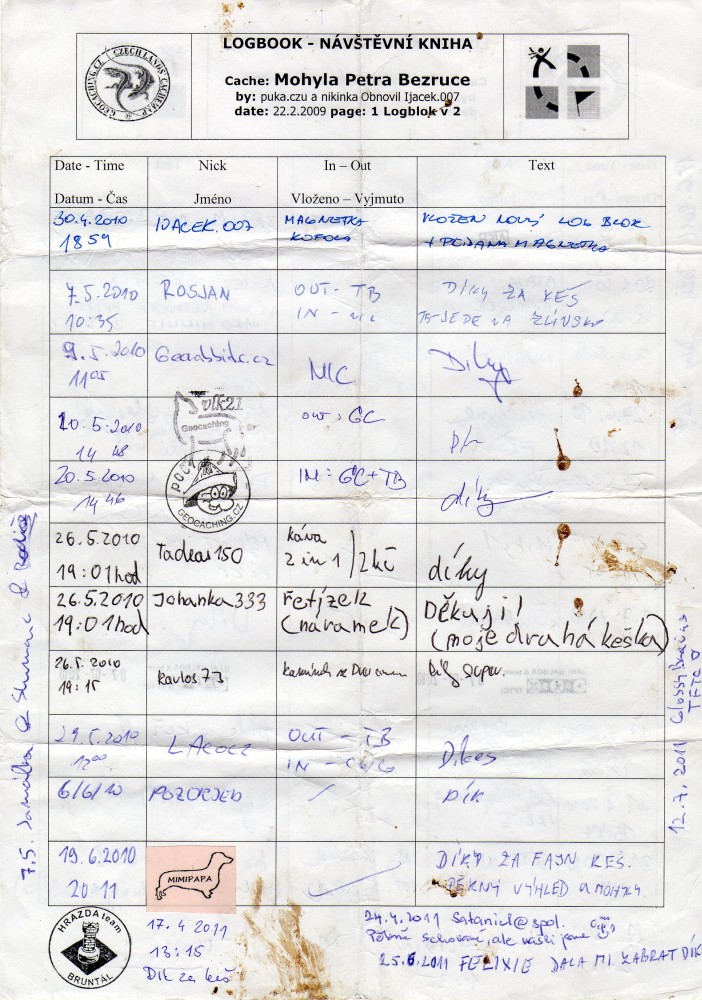 LOGBOOK - NÁVŠTĚVNÍ KNIHA
Cache: Mohyla Petra Bezruce
by: puka.czu a nikinka Obnovil Ijacek.007
date: 22.2.2009 page: 1 Logblok v 2
GEOCACHING.CZ CZECH LANDS CACHEMAP
Date - Time Nick In – Out Text
Datum - Čas Jméno Vloženo – Vyjmuto
30.4.2010 IJACEK.007 MAGNETKA VLOŽEN NOVÝ LOG BLOK
1859 KOFOLA + PŘIDANA MAGNETKA
7.5.2010 ROSJAN OUT - TB DÍKY ZA KEŠ
10:35 IN - TB JEDE NA ZLÍNSKO
9.5.2010 NIC Díky
1105
20.5.2010 vlk21 OUT: GC
Geocaching
14 48
20.5.2010 IN: GC+TB díky
14 46 GEOCACHING.CZ
26.5.2010 Tadeas150 káva
2 in 1 / 2kč díky
19:01hod
26.5.2010 Johanka333 Řetízek Děkuji!
19:01hod (náramek) (moje druhá keška)
26.5.2010 Karlos73
19:15
29.5.2010 OUT - TB Díkes
1200 IN - CWG
6/6/10 POZORJED / DÍK
19.6.2010 MIMIPAPA DÍKY ZA FAJN KEŠ.
20 11 PĚKNÝ VÝHLED U MOHYLY.
HRAZDA team
BRUNTÁL
17.4 2011
13:15
Dík za keš
24.4.2011 Satanicl@spol.
Pěkně schované, ale našli jsme
25.6.2011 FELIXIE DALA MI ZABRAT DÍK
7.5. &
12.7.2011
TFTC